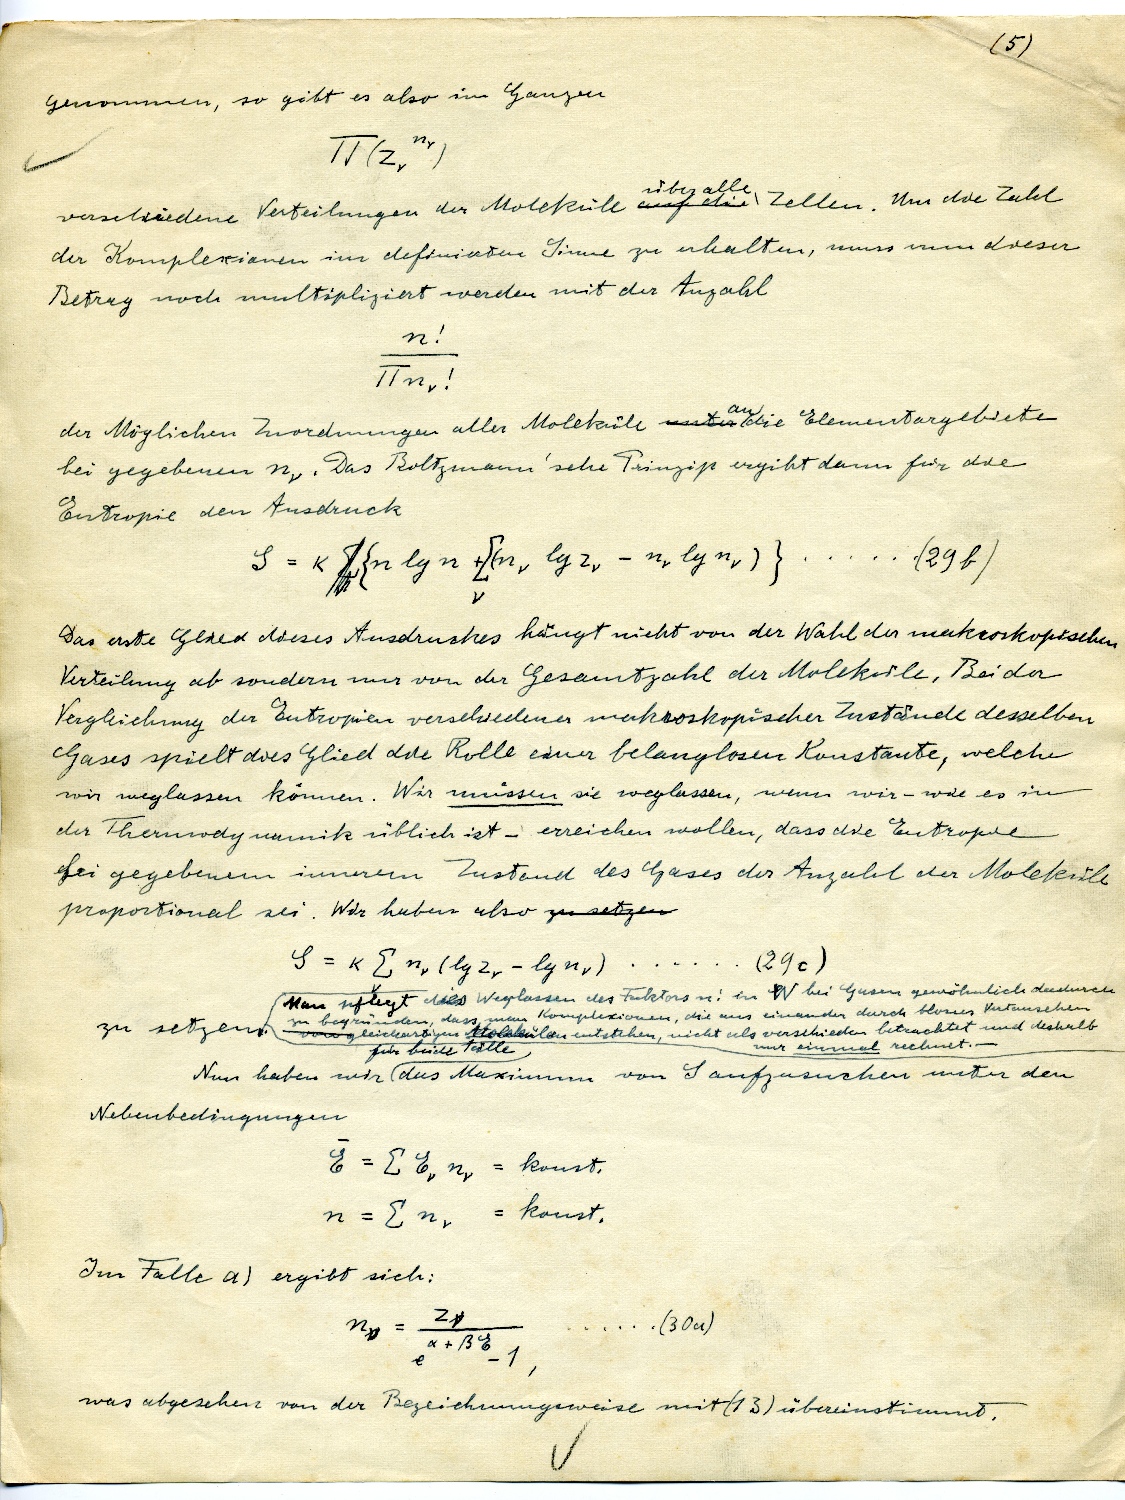 (5)
genommen, so gibt es also im Ganzen
Π(z_ν^{n_ν})
verschiedene Verteilungen der Moleküle ~~auf die~~ über alle Zellen. Um die Zahl
der Komplexionen im definierten Sinne zu erhalten, muss nun dieser
Betrag noch multipliziert werden mit der Anzahl
n!
Πn_ν!
der Möglichen Zuordnungen aller Moleküle ~~unter~~ an die Elementargebiete
bei gegebenen n_ν. Das Boltzmann'sche Prinzip ergibt dann für die
Entropie den Ausdruck
S = κ {n lg n + Σ_ν (n_ν lg z_ν − n_ν lg n_ν)} . . . . . . (29b)
Das erste Glied dieses Ausdruckes hängt nicht von der Wahl der makroskopischen
Verteilung ab sondern nur von der Gesamtzahl der Moleküle. Bei der
Vergleichung der Entropien verschiedener makroskopischer Zustände desselben
Gases spielt dies Glied die Rolle einer belanglosen Konstante, welche
wir weglassen können. Wir müssen sie weglassen, wenn wir – wie es in
der Thermodynamik üblich ist – erreichen wollen, dass die Entropie
bei gegebenem innerem Zustand des Gases der Anzahl der Moleküle
proportional sei. Wir haben also ~~zu setzen~~
S = κ Σ_ν n_ν (lg z_ν − lg n_ν) . . . . . . . (29c)
zu setzen. (Man pflegt dies Weglassen des Faktors n! in W bei Gasen gewöhnlich dadurch
zu begründen, dass man Komplexionen, die aus einander durch blosses Vertauschen
von gleichartigen Molekülen entstehen, nicht als verschieden betrachtet und deshalb
nur einmal rechnet. –
für beide Fälle
Nun haben wir das Maximum von S aufzusuchen unter den
Nebenbedingungen
Ē = Σ E_ν n_ν = konst.
n = Σ n_ν = konst.
Im Falle a) ergibt sich:
n_ν = z_ν / (e^{α + βE} − 1), . . . . . . (30a)
was abgesehen von der Bezeichnungsweise mit (13) übereinstimmt.